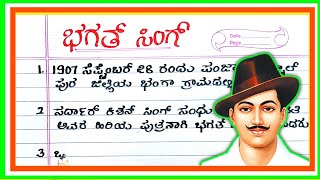 ಭಗತ್ ಸಿಂಗ್
Date
Page
1. 1907 ಸೆಪ್ಟೆಂಬರ್ 28 ರಂದು ಪಂಜಾ
ಪುರ ಜಿಲ್ಲೆಯ ಭಂಗಾ ಗ್ರಾಮದಲ್ಲಿ
2. ಸರ್ದಾರ್ ಕಿಶನ್ ಸಿಂಗ್ ಸಂಧು
ಅವರ ಹಿರಿಯ ಪುತ್ರನಾಗಿ ಭಗತ್
3.